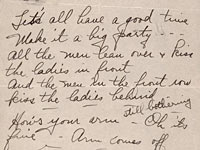 Let's all have a good time
Make it a big party —
all the men lean over & kiss
the ladies in front
And the men in the front row
kiss the ladies behind
still bothering
How's your arm Oh its
fine - Arm comes off